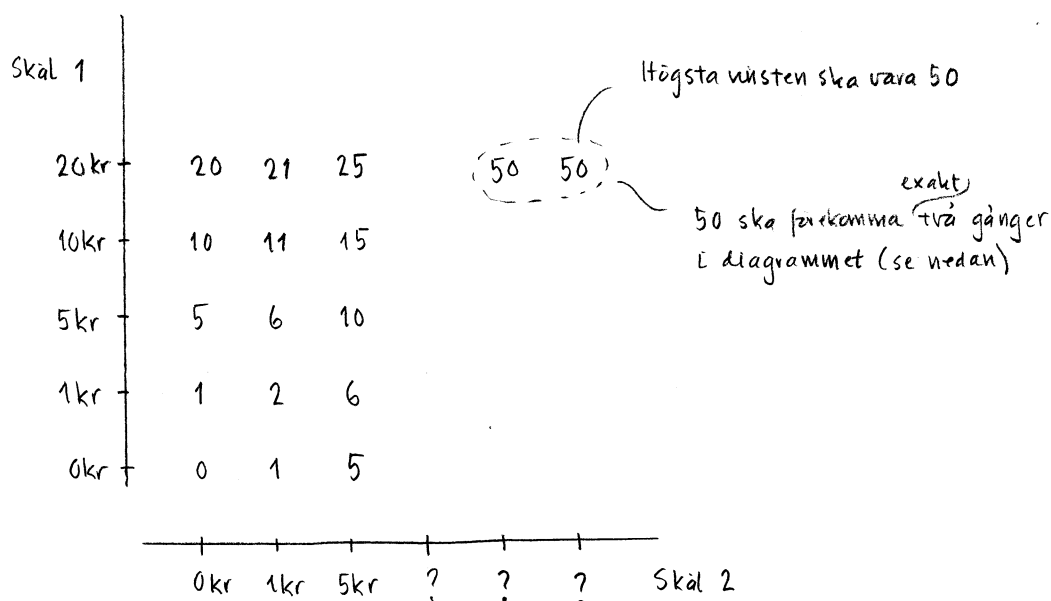 Skål 1
Högsta vinsten ska vara 50
20kr 20 21 25 50 50
exakt
50 ska förekomma två gånger
10kr 10 11 15
i diagrammet (se nedan)
5kr 5 6 10
1kr 1 2 6
0kr 0 1 5
0kr 1kr 5kr ? ? ? Skål 2